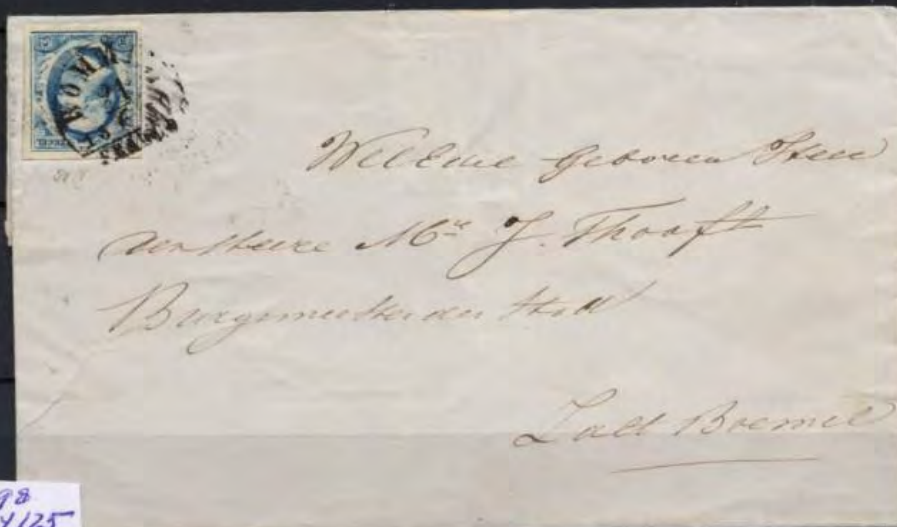 WelEdele Geboren Heer
den Heere Mr. J. Thooft
Burgemeester der Stad
Zalt Boemel
98
4/25